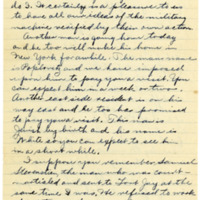 do so. It certainly is a pleasure to us
to have all our ideas of the military
machine verified by their own action.
Another man is going home today
and he too will make his home in
New York for awhile. The man's name
is and we have impressed
upon him to pay you a visit. You
can expect him in a week or two.
Another east side resident is on his
way east and he too has promised
to pay you a visit. This man is
Jewish by birth and his name is
White so you can expect to see him
in a short while.
I suppose you remember Samuel
the man who was court-
martialed and sent to Fort Jay at the
same time I was. He refused to work